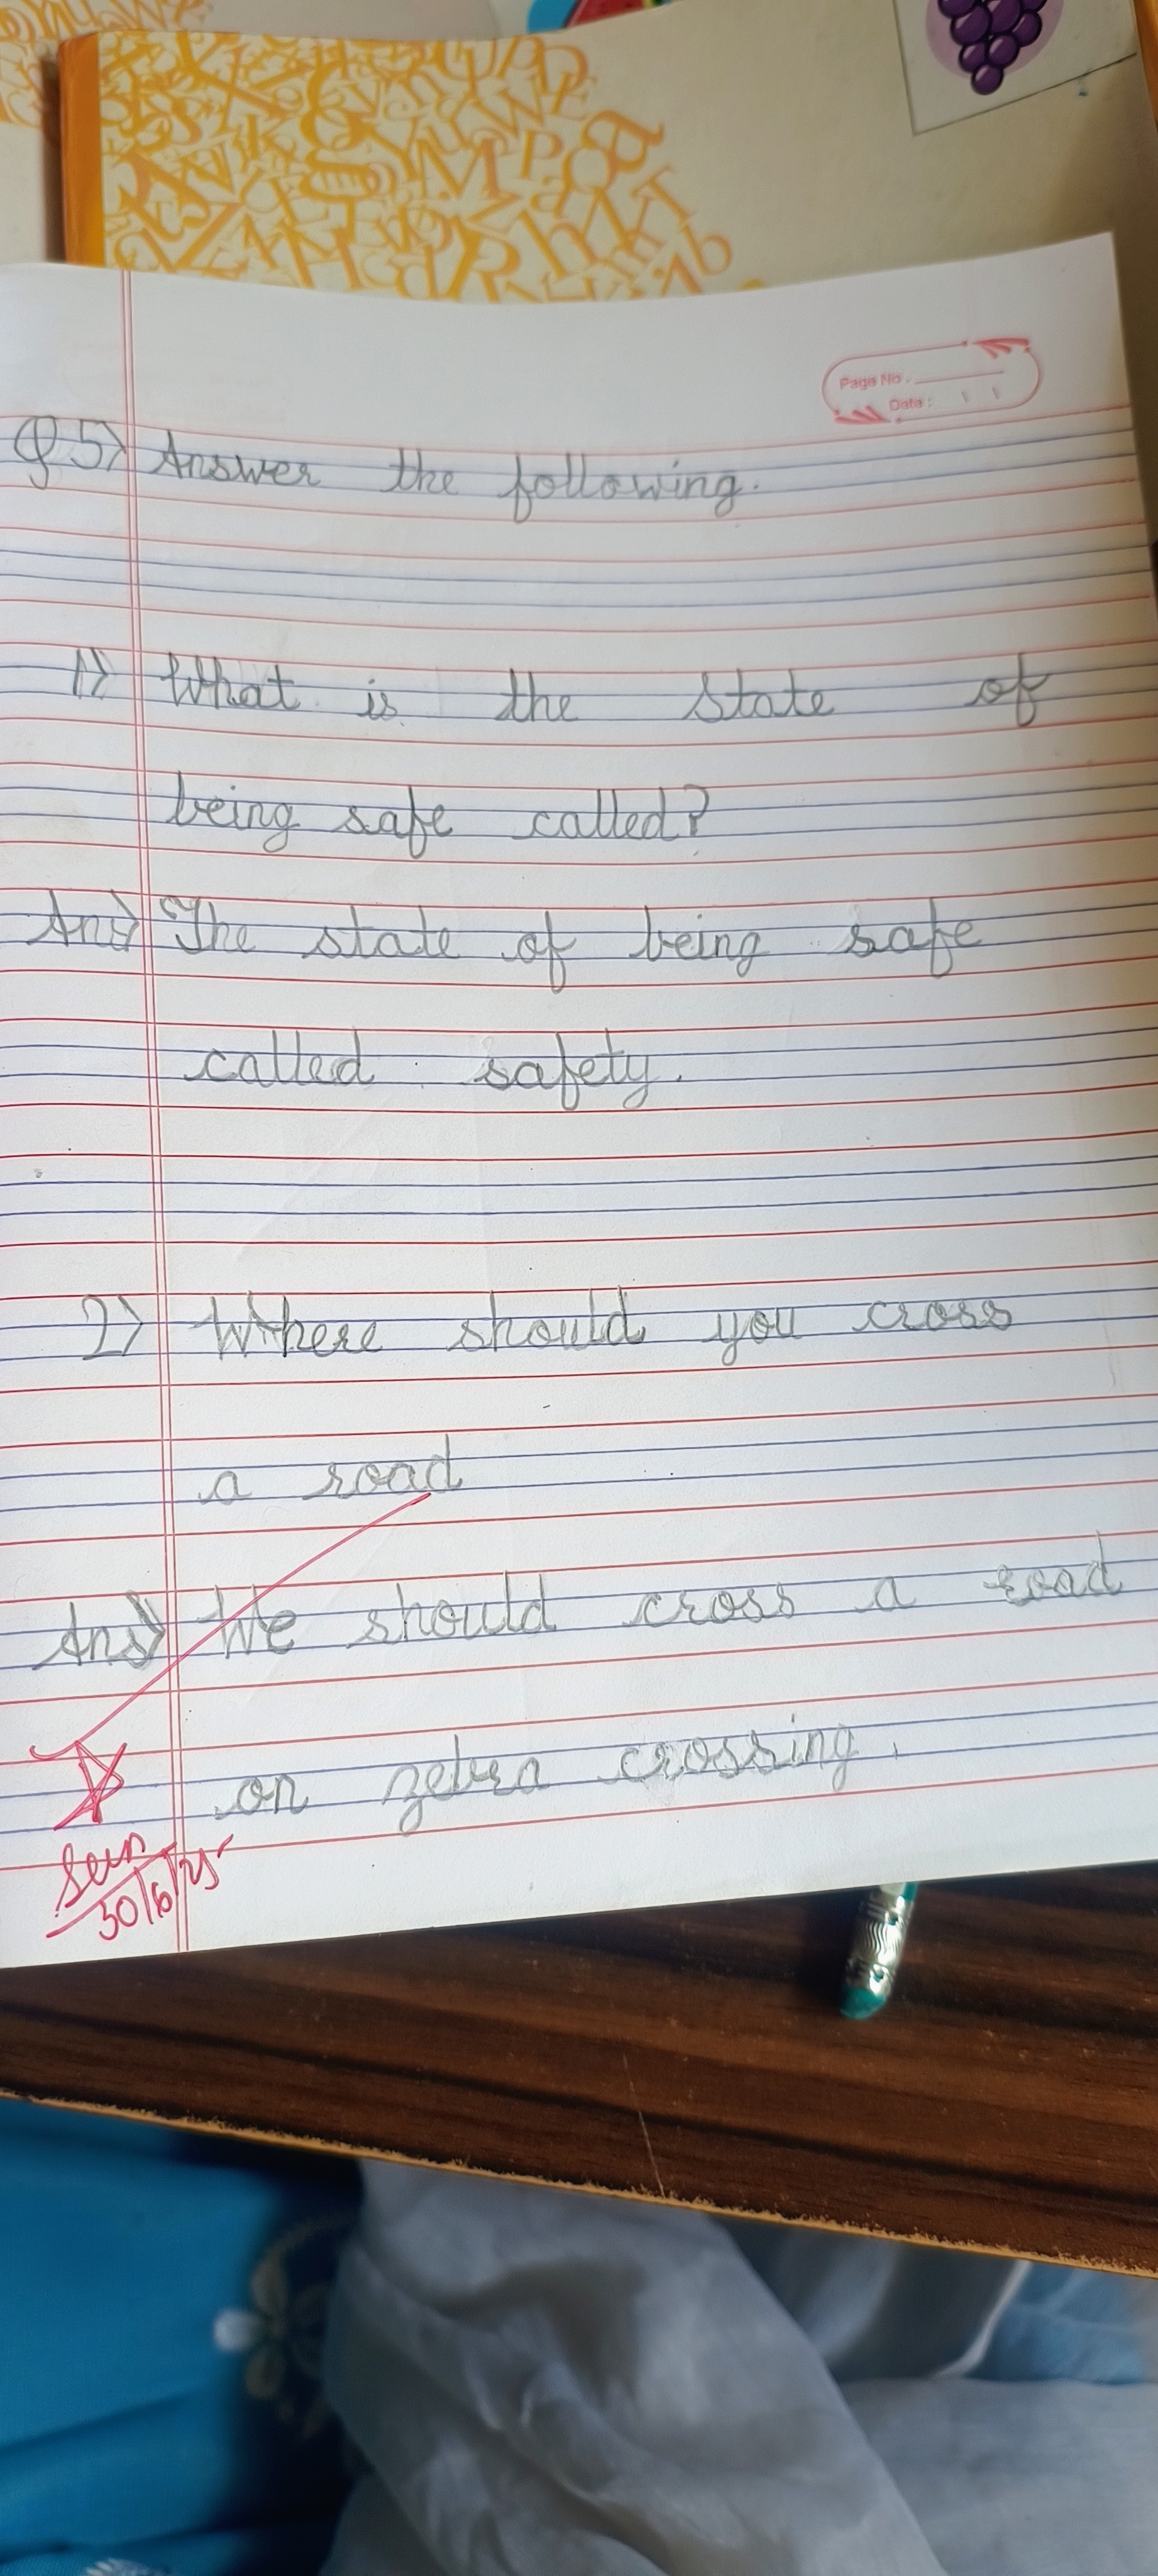 Page No.
Date :
Q 5) Answer the following.
1) What is the state of
being safe called?
Ans) The state of being safe
called safety.
2) Where should you cross
a road
Ans) We should cross a road
on zebra crossing.
30/6/25